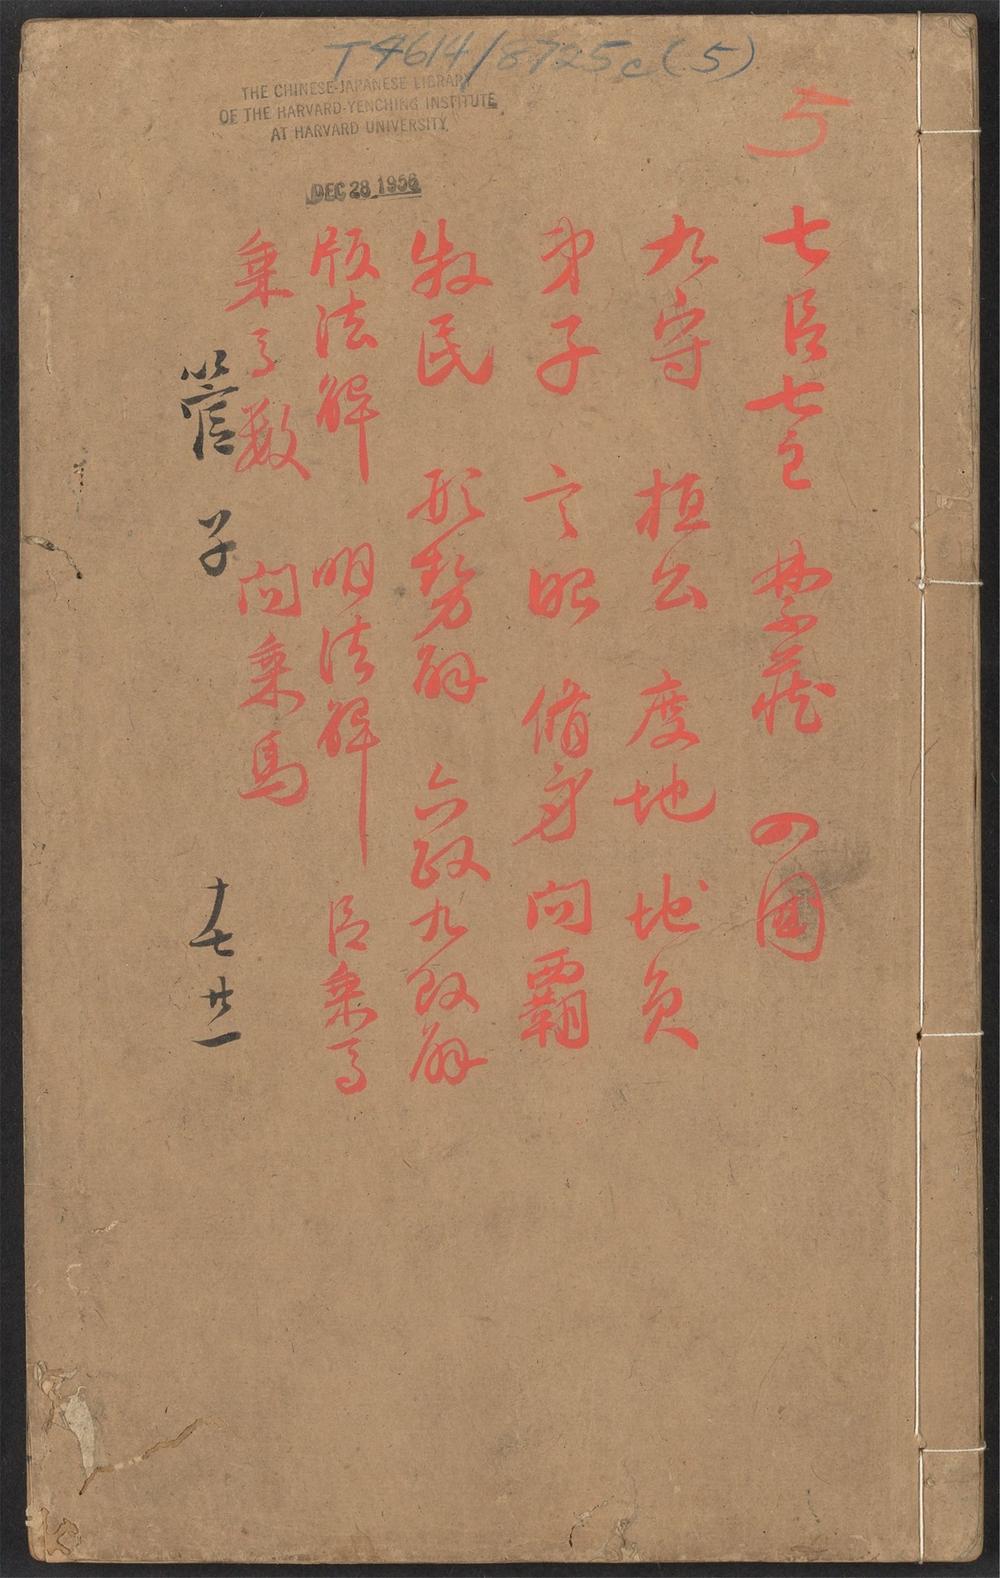 T4614/8725c(5)
THE CHINESE-JAPANESE LIBRARY
OF THE HARVARD-YENCHING INSTITUTE
AT HARVARD UNIVERSITY
DEC 28 1956
5
七臣七主 禁藏 入國
九守 桓公 度地 地員
弟子 言昭 脩身 问霸
牧民 形勢解 六政九敗解
版法解 明法解 臣乘馬
乘馬数 问乘馬
管子 十七 廿一